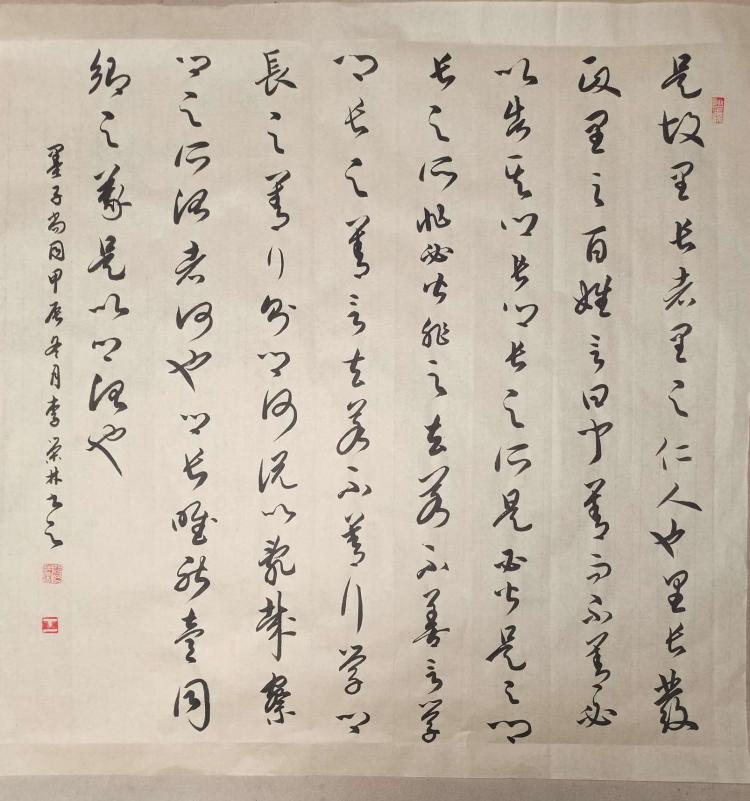 是故里長者里之仁人也里長發
政里之百姓言曰聞善而不善必
以告其鄉長鄉長之所是必皆是之鄉
長之所非必皆非之去若不善言学
鄉長之善言去若不善行学鄉
長之善行則鄉何說以亂哉察
鄉之所治者何也鄉長唯能壹同
鄉之義是以鄉治也
墨子尚同甲辰冬月李荣林书